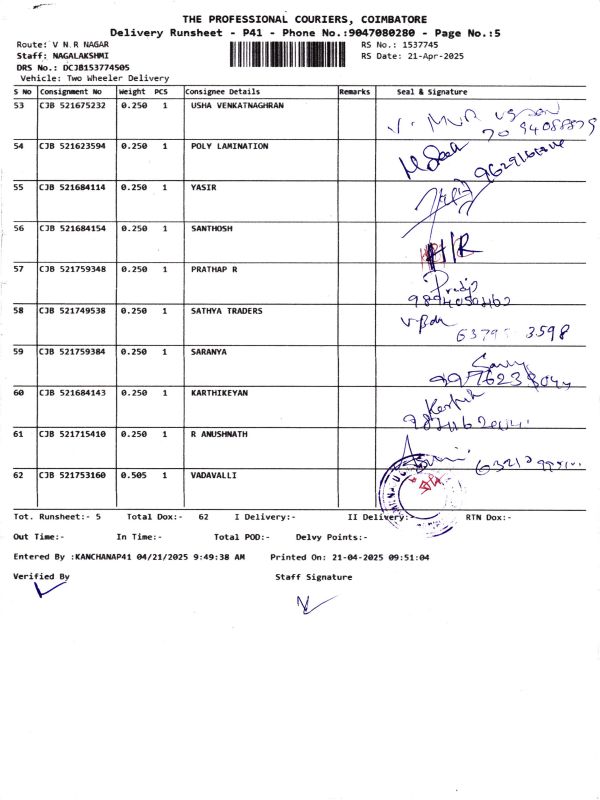 THE PROFESSIONAL COURIERS, COIMBATORE
Delivery Runsheet - P41 - Phone No.:9047080280 - Page No.:5
Route: V N.R NAGAR RS No.: 1537745
Staff: NAGALAKSHMI RS Date: 21-Apr-2025
DRS No.: DCJB153774505
Vehicle: Two Wheeler Delivery
S No Consignment No Weight PCS Consignee Details Remarks Seal & Signature
53 CJB 521675232 0.250 1 USHA VENKATNAGHRAN
54 CJB 521623594 0.250 1 POLY LAMINATION
55 CJB 521684114 0.250 1 YASIR
56 CJB 521684154 0.250 1 SANTHOSH H/R
57 CJB 521759348 0.250 1 PRATHAP R
58 CJB 521749538 0.250 1 SATHYA TRADERS
59 CJB 521759384 0.250 1 SARANYA
60 CJB 521684143 0.250 1 KARTHIKEYAN
61 CJB 521715410 0.250 1 R ANUSHNATH
62 CJB 521753160 0.505 1 VADAVALLI
Tot. Runsheet:- 5 Total Dox:- 62 I Delivery:- II Delivery:- RTN Dox:-
Out Time:- In Time:- Total POD:- Delvy Points:-
Entered By :KANCHANAP41 04/21/2025 9:49:38 AM Printed On: 21-04-2025 09:51:04
Verified By Staff Signature